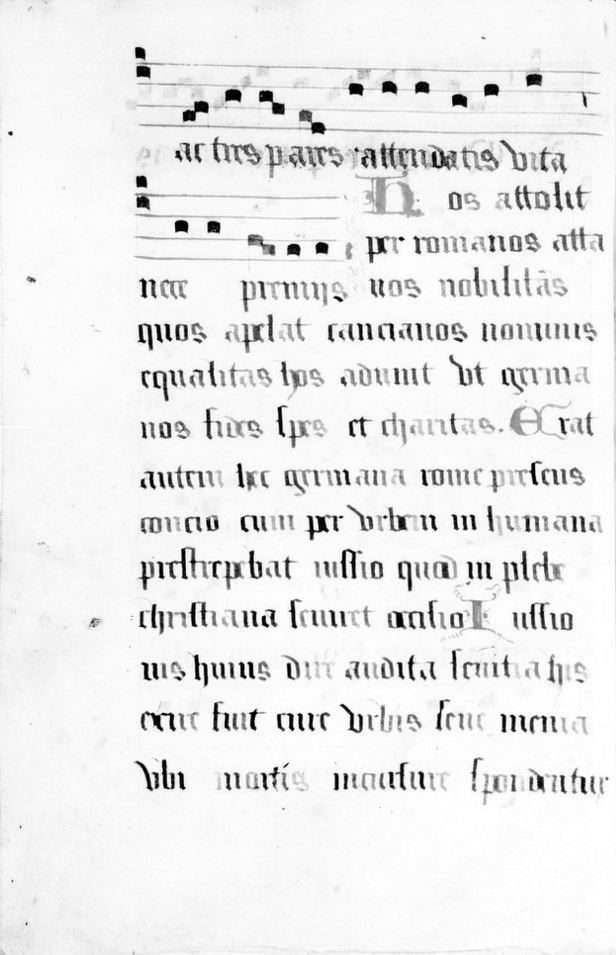 ac tres pares attendatis vita
Hos attolit
per romanos atta
nece premijs uos nobilitas
quos apelat cancianos nominis
equalitas hos adunit vt germa
nos fides spes et charitas. Erat
autem hec germana rome presens
concio cum per vrbem in humana
prestrepebat iussio quod in plebe
christiana seuiret occisio Iussio
nis huius audita seuitia his
exire fuit cure vrbis seue menia
vbi mortis spondentur